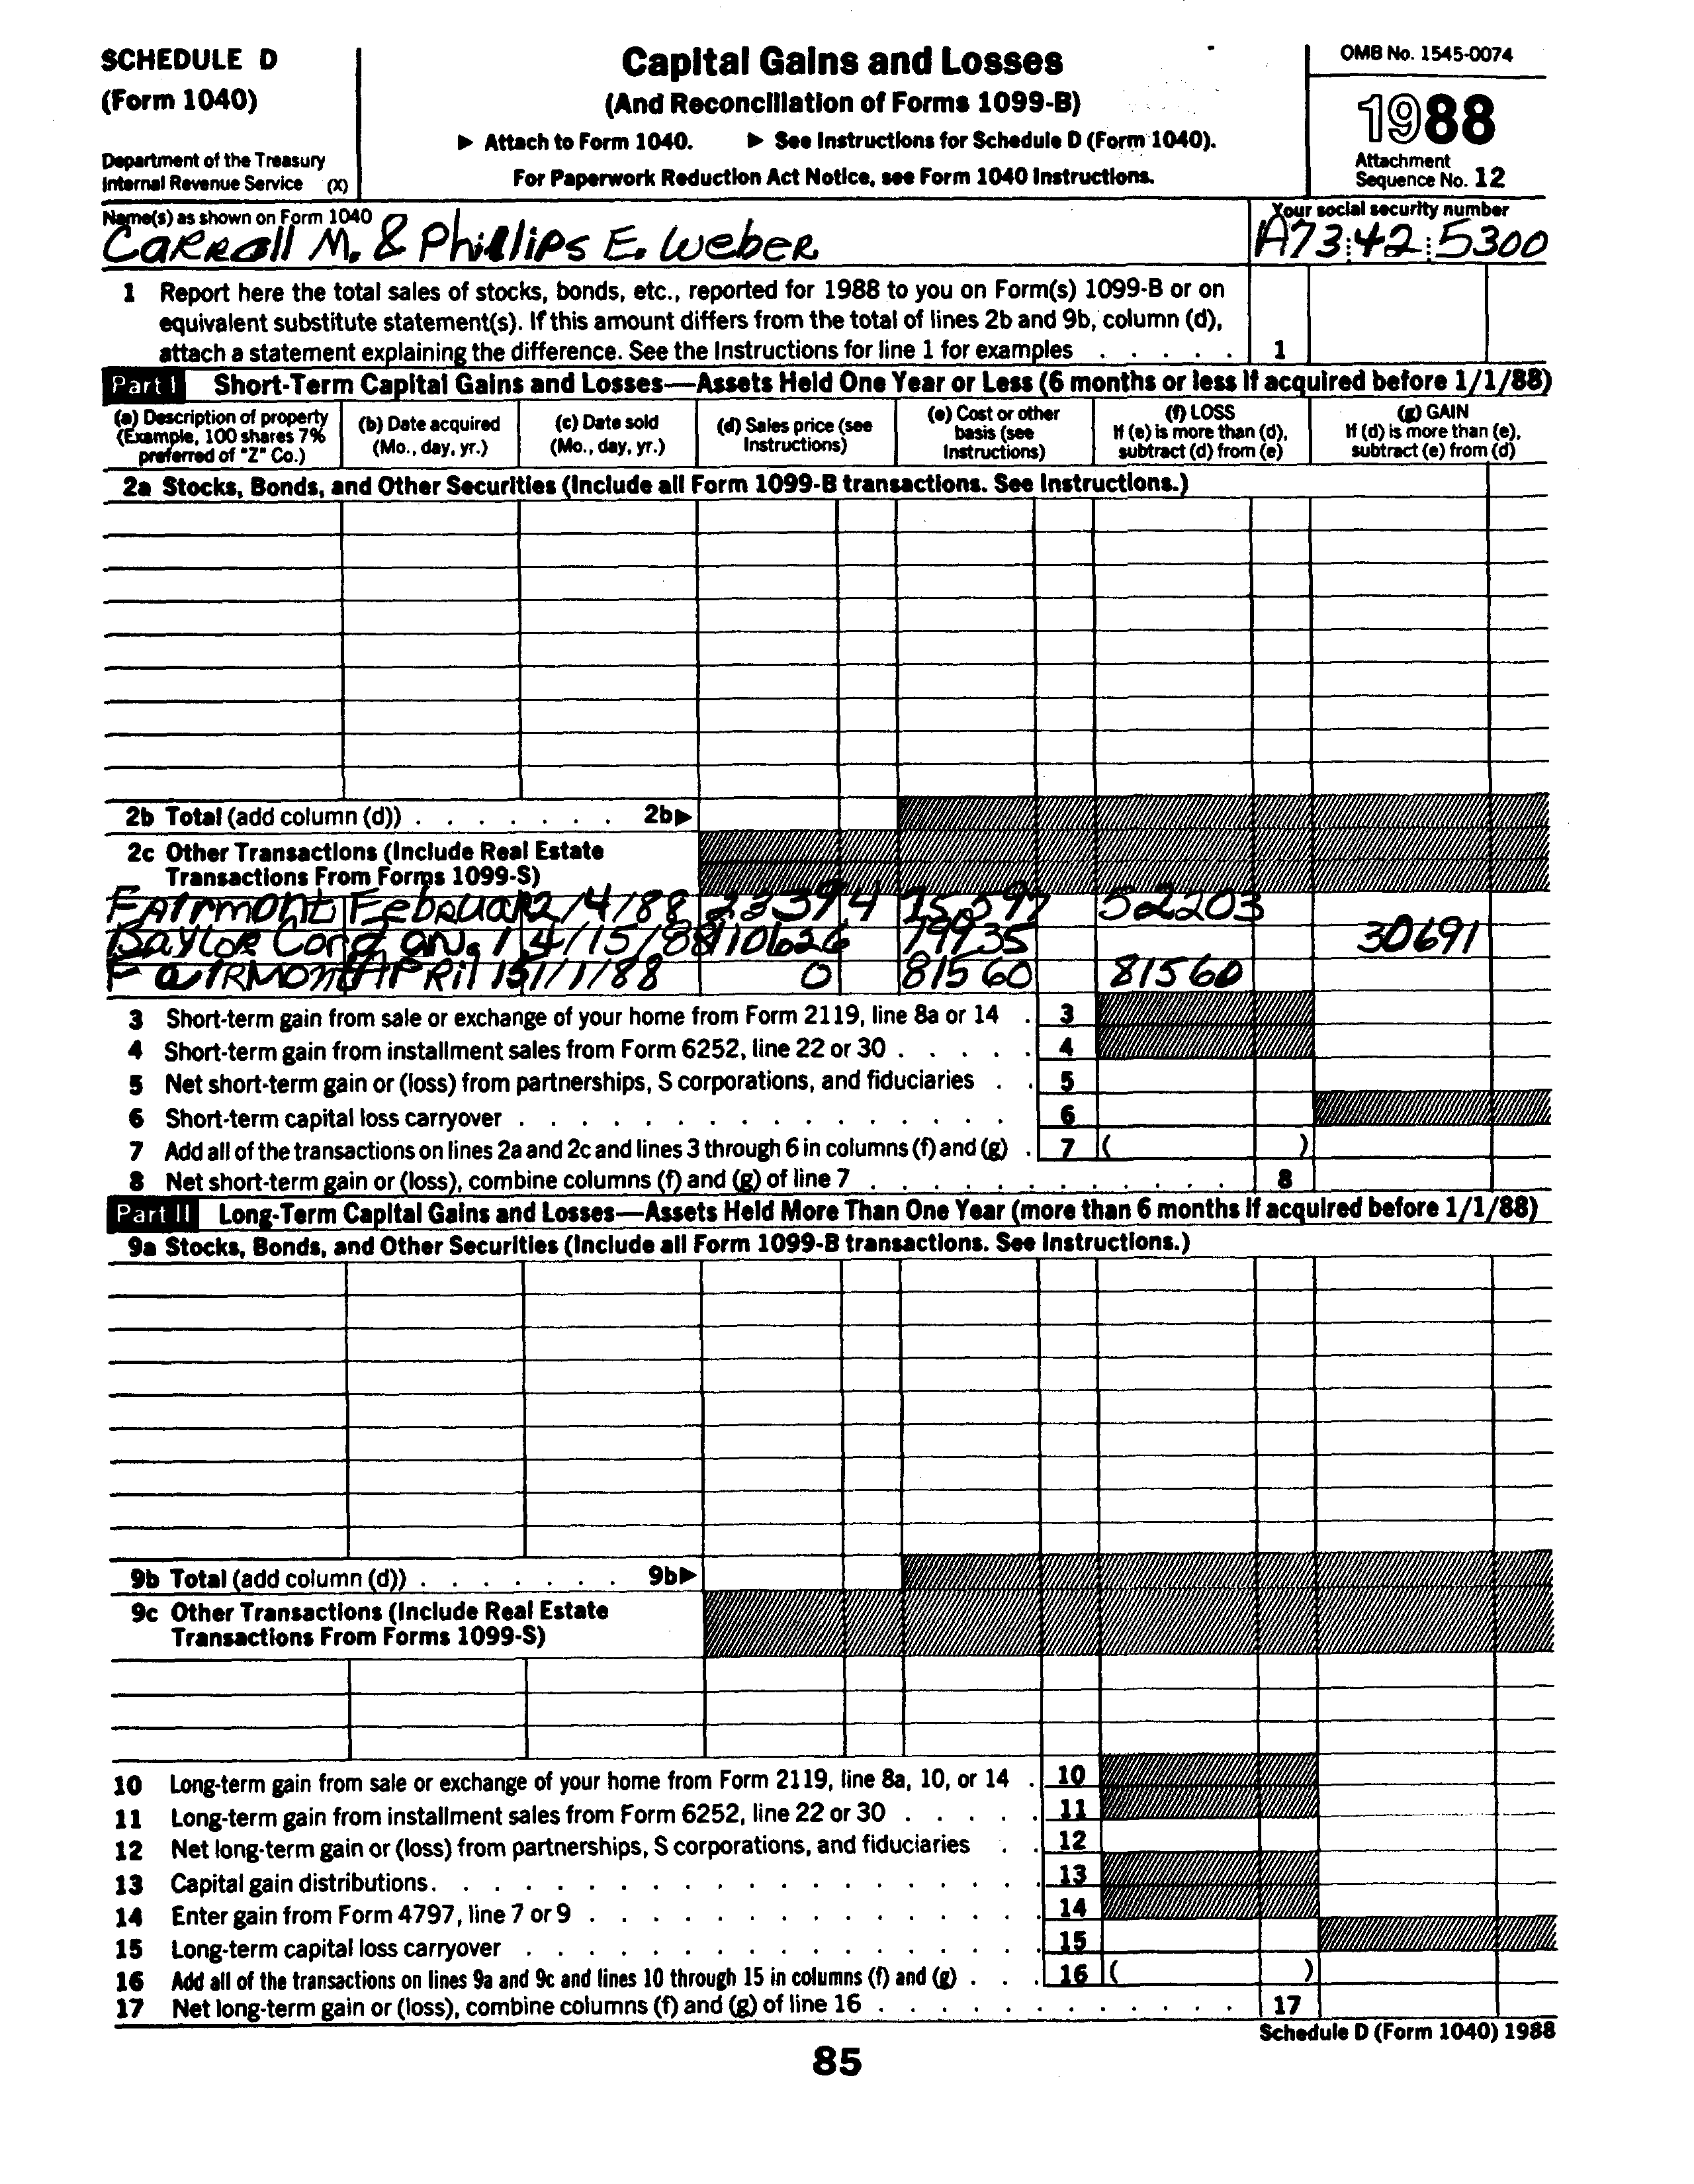 SCHEDULE D
(Form 1040)
Department of the Treasury
Internal Revenue Service (X)
Capital Gains and Losses
(And Reconciliation of Forms 1099-B)
▶ Attach to Form 1040. ▶ See Instructions for Schedule D (Form 1040).
For Paperwork Reduction Act Notice, see Form 1040 Instructions.
OMB No. 1545-0074
1988
Attachment
Sequence No. 12
Name(s) as shown on Form 1040
Carroll M. & Phillips E. Weber
Your social security number
A73:42:5300
1 Report here the total sales of stocks, bonds, etc., reported for 1988 to you on Form(s) 1099-B or on
equivalent substitute statement(s). If this amount differs from the total of lines 2b and 9b, column (d),
attach a statement explaining the difference. See the Instructions for line 1 for examples . . . . . 1
Part I Short-Term Capital Gains and Losses—Assets Held One Year or Less (6 months or less if acquired before 1/1/88)
(a) Description of property
(Example, 100 shares 7%
preferred of "Z" Co.)
(b) Date acquired
(Mo., day, yr.)
(c) Date sold
(Mo., day, yr.)
(d) Sales price (see
Instructions)
(e) Cost or other
basis (see
Instructions)
(f) LOSS
If (e) is more than (d),
subtract (d) from (e)
(g) GAIN
If (d) is more than (e),
subtract (e) from (d)
2a Stocks, Bonds, and Other Securities (Include all Form 1099-B transactions. See Instructions.)
2b Total (add column (d)) . . . . . . . 2b▶
2c Other Transactions (Include Real Estate
Transactions From Forms 1099-S)
Fairmont Februar 2/4/88 23394 75597 52203
Baylor Cord an. 1 4/15/88 110626 79935 30691
Fairmont April 15 1/1/88 0 81560 81560
3 Short-term gain from sale or exchange of your home from Form 2119, line 8a or 14 . 3
4 Short-term gain from installment sales from Form 6252, line 22 or 30 . . . . . 4
5 Net short-term gain or (loss) from partnerships, S corporations, and fiduciaries . . 5
6 Short-term capital loss carryover . . . . . . . . . . . . . . . . 6
7 Add all of the transactions on lines 2a and 2c and lines 3 through 6 in columns (f) and (g) . 7 ( )
8 Net short-term gain or (loss), combine columns (f) and (g) of line 7 . . . . . . . . . . . . 8
Part II Long-Term Capital Gains and Losses—Assets Held More Than One Year (more than 6 months if acquired before 1/1/88)
9a Stocks, Bonds, and Other Securities (Include all Form 1099-B transactions. See Instructions.)
9b Total (add column (d)) . . . . . . . 9b▶
9c Other Transactions (Include Real Estate
Transactions From Forms 1099-S)
10 Long-term gain from sale or exchange of your home from Form 2119, line 8a, 10, or 14 . 10
11 Long-term gain from installment sales from Form 6252, line 22 or 30 . . . . . 11
12 Net long-term gain or (loss) from partnerships, S corporations, and fiduciaries . . 12
13 Capital gain distributions . . . . . . . . . . . . . . . . . . . 13
14 Enter gain from Form 4797, line 7 or 9 . . . . . . . . . . . . . . 14
15 Long-term capital loss carryover . . . . . . . . . . . . . . . . 15
16 Add all of the transactions on lines 9a and 9c and lines 10 through 15 in columns (f) and (g) . . . 16 ( )
17 Net long-term gain or (loss), combine columns (f) and (g) of line 16 . . . . . . . . . . . . 17
Schedule D (Form 1040) 1988
85